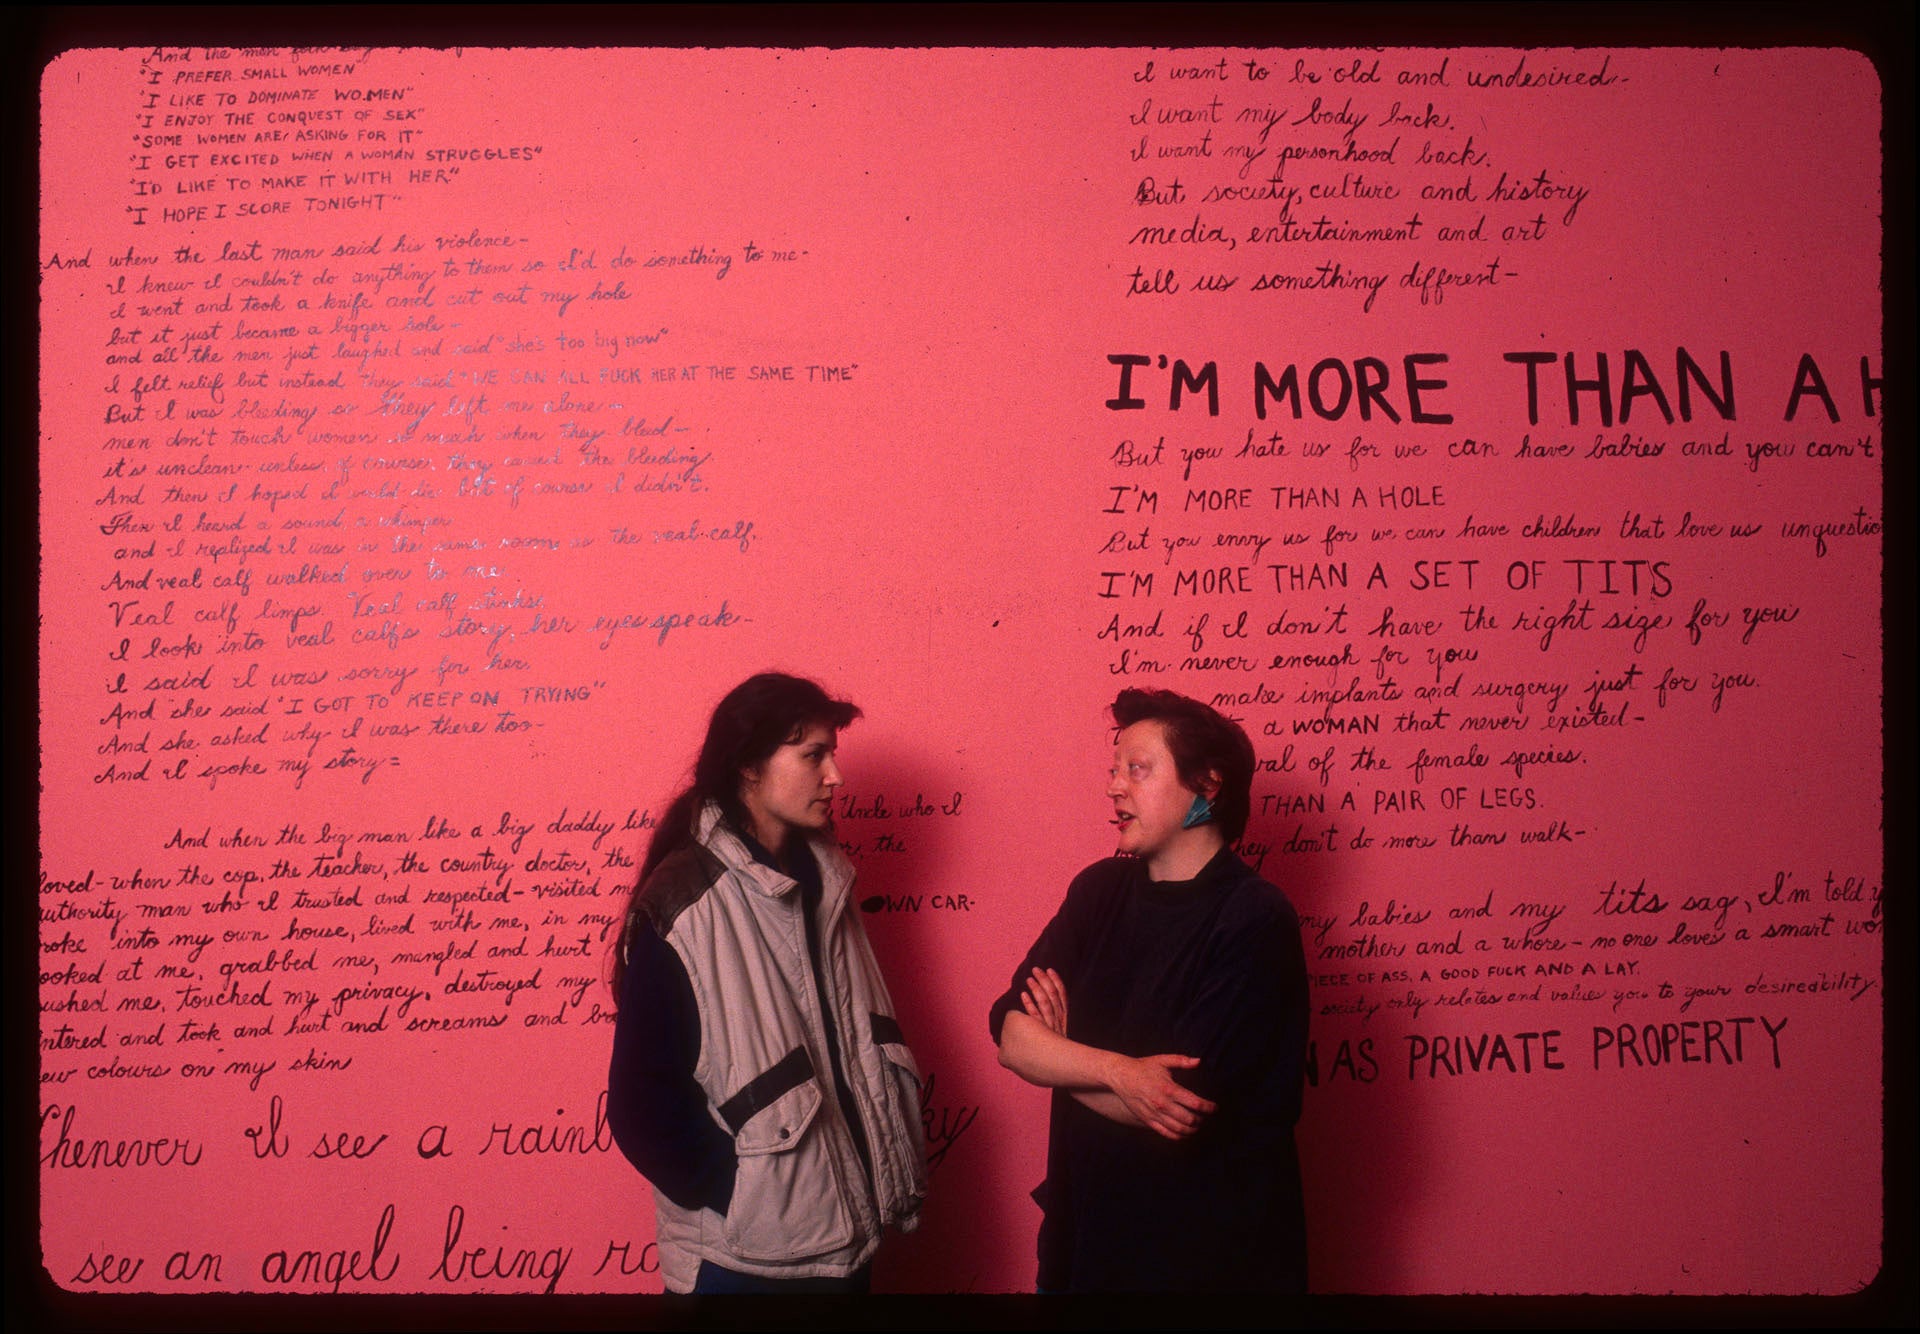 And the men folk say
"I PREFER SMALL WOMEN"
"I LIKE TO DOMINATE WOMEN"
"I ENJOY THE CONQUEST OF SEX"
"SOME WOMEN ARE ASKING FOR IT"
"I GET EXCITED WHEN A WOMAN STRUGGLES"
"I'D LIKE TO MAKE IT WITH HER"
"I HOPE I SCORE TONIGHT"
And when the last man said his violence-
I knew I couldn't do anything to them so I'd do something to me-
I went and took a knife and cut out my hole
but it just became a bigger hole-
and all the men just laughed and said "she's too big now"
I felt relief but instead they said "WE CAN ALL FUCK HER AT THE SAME TIME"
But I was bleeding so they left me alone-
men don't touch women so much when they bleed-
it's unclean unless, of course, they caused the bleeding.
And then I hoped I would die but of course I didn't.
Then I heard a sound, a whimper
and I realized I was in the same room as the veal calf.
And veal calf walked over to me.
Veal calf limps. Veal calf stinks.
I look into veal calf's story, her eyes speak-
I said I was sorry for her.
And she said "I GOT TO KEEP ON TRYING"
And she asked why I was there too-
And I spoke my story=
And when the big man like a big daddy like Uncle who I
loved-when the cop, the teacher, the country doctor, the the
authority man who I trusted and respected-visited me
roke into my own house, lived with me, in my OWN CAR-
ooked at me, grabbed me, mangled and hurt
ushed me, touched my privacy, destroyed my
ntered and took and hurt and screams and
ew colours on my skin
Whenever I see a rainb ky
see an angel being
I want to be old and undesired-
I want my body back.
I want my personhood back.
But society, culture and history
media, entertainment and art
tell us something different-
I'M MORE THAN A H
But you hate us for we can have babies and you can't
I'M MORE THAN A HOLE
But you envy us for we can have children that love us unquestio
I'M MORE THAN A SET OF TITS
And if I don't have the right size for you
I'm never enough for you
make implants and surgery just for you.
a WOMAN that never existed-
val of the female species.
THAN A PAIR OF LEGS.
hey don't do more than walk-
my babies and my tits sag, I'm told y
mother and a whore-no one loves a smart wo
PIECE OF ASS, A GOOD FUCK AND A LAY.
society only relates and values you to your desireability.
N AS PRIVATE PROPERTY